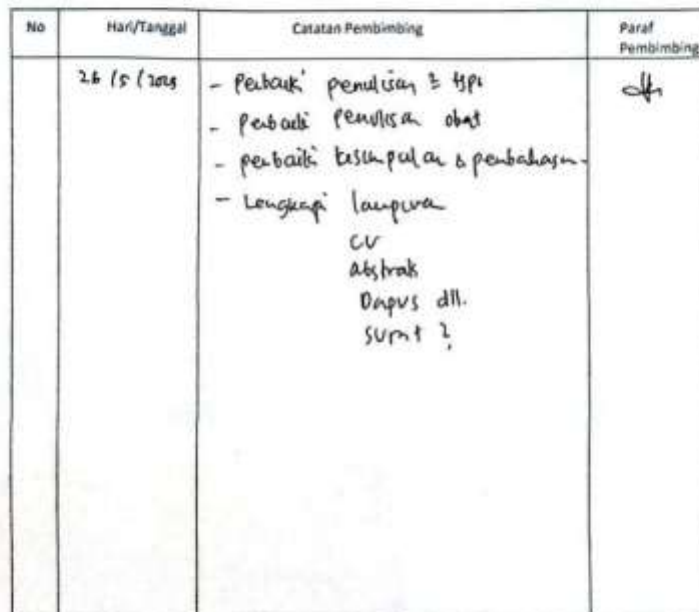 No Hari/Tanggal Catatan Pembimbing Paraf
Pembimbing
26/5/ - Perbaiki penulisan
- Perbaiki penulisan obat
- perbaiki kesimpulan & pembahasan
- Lengkapi lampiran
CV
Abstrak
Dapus dll.